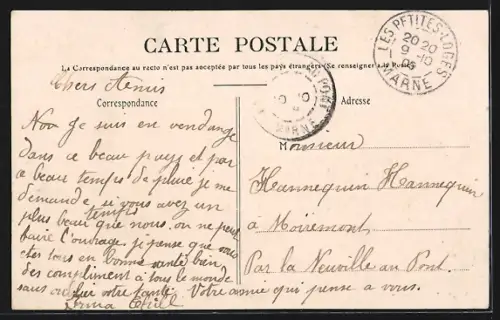 CARTE POSTALE
La Correspondance au recto n'est pas acceptée par tous les pays étrangers (Se renseigner à la Poste)
Chers Amis
Correspondance
Nou Je suis en vendange
dans ce beau pays et par
ce beau temps de pluie je me
demande si vous avez un
plus beau temps
que nous. on ne peux
faire l'ouvrage. je pense que vous
etes tous en bonne santé bien
des compliment à tous le monde
sans oublier votre tante. Votre amie qui pense a vous.
Irma
Adresse
Monsieur
Hannequin Hannequin
a Moiremont
Par la Neuville au Pont.
LES PETITES-LOGES
20 20
9 -10
MARNE
AU PONT
MARNE